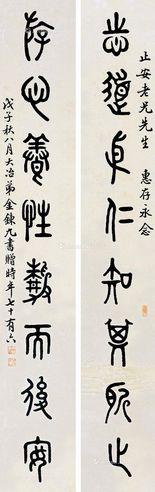 止安老兄先生 惠存永念
志道卓仁知其所止
存心養性靜而後安
戊子秋八月大冶弟金鍊九書贈時年七十有六